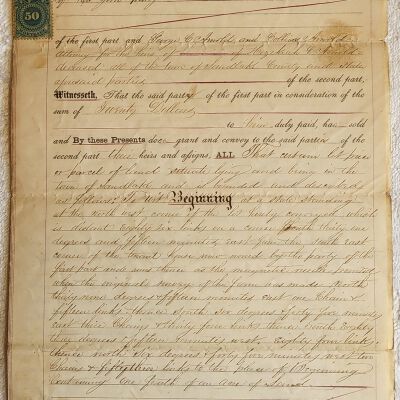 50
of the first part, and George C. Arnold and
of the town of
deceased all of the town of Sandlake County and State
aforesaid parties of the second part,
Witnesseth, That the said party of the first part in consideration of the
sum of Twenty Dollars
to him duly paid, has sold
and By these Presents does grant and convey to the said parties of the
second part their heirs and assigns, ALL That certain lot piece
or parcel of land situate lying and being in the
town of Sandlake and is bounded and described
as follows To wit Beginning at a stake standing
at the north west corner of the lot hereby conveyed which
is distant Eighty six links on a course South thirty one
degrees and fifteen minutes East from the South east
corner of the tenant house now owned by the party of the
first part and runs thence as the magnetic needle pointed
when the original survey of the farm was made North
thirty nine degrees & fifteen minutes east one Chain &
fifteen links thence South six degrees & forty five minutes
east three Chains & thirty four links thence South Eighty
three degrees & fifteen minutes west Eighty four links
thence north six degrees & forty five minutes west two
Chains & fifty links to the place of Beginning
Containing one fourth of an acre of land